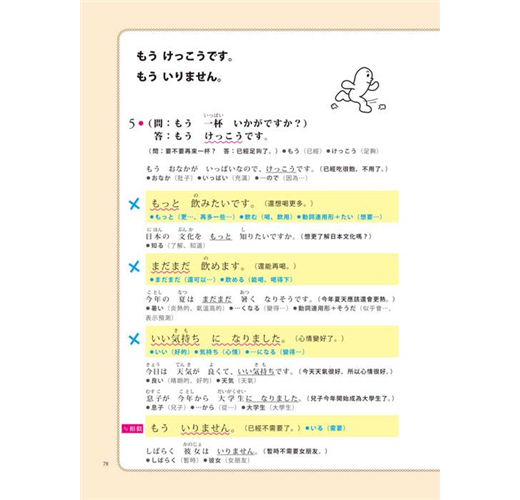 もう けっこうです。
もう いりません。
5●(問：もう 一杯 いかがですか？)
いっぱい
答：もう けっこうです。
(問：要不要再來一杯？ 答：已經足夠了。) ●もう(已經) ●けっこう(足夠)
もう おなかが いっぱいなので、けっこうです。(已經吃很飽，不用了。)
●おなか(肚子) ●いっぱい(充滿) ●…ので(因為…)
の
× もっと 飲みたいです。(還想喝更多。)
●もっと(更…、再多一些…) ●飲む(喝、飲用) ●動詞連用形＋たい(想要…)
にほん ぶんか し
日本の 文化を もっと 知りたいですか。(想更了解日本文化嗎？)
●知る(了解、知道)
の
× まだまだ 飲めます。(還能再喝。)
●まだまだ(還可以…) ●飲める(能喝、喝得下)
ことし なつ あつ
今年の 夏は まだまだ 暑く なりそうです。(今年夏天應該還會更熱。)
●暑い(炎熱的、氣溫高的) ●…くなる(變得…) ●動詞連用形＋そうだ(似乎會…、
表示預測)
きも
× いい気持ち に なりました。(心情變好了。)
●いい(好的) ●気持ち(心情) ●…になる(變得…)
きょう てんき よ きも
今日は 天気が 良くて、いい気持ちです。(今天天氣很好，所以心情很好。)
●良い(晴朗的、好的) ●天気(天氣)
むすこ ことし だいがくせい
息子が 今年から 大学生に なりました。(兒子今年開始成為大學生了。)
●息子(兒子) ●…から(從…) ●大学生(大學生)
相似 もう いりません。(已經不需要了。) ●いる(需要)
かのじょ
しばらく 彼女は いりません。(暫時不需要女朋友。)
●しばらく(暫時) ●彼女(女朋友)
78